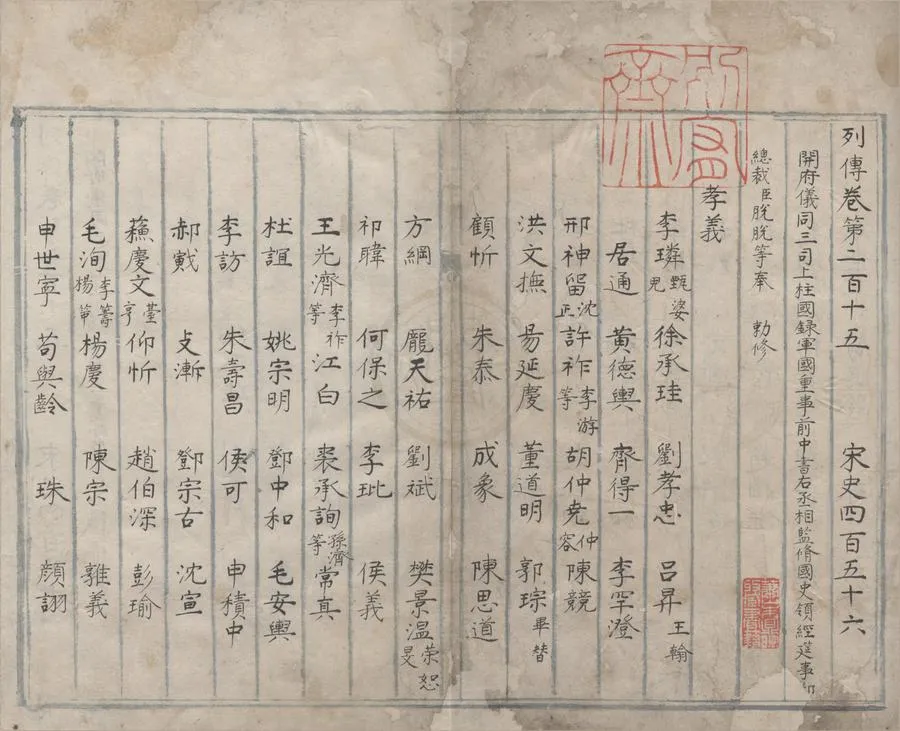 列傳卷第二百十五 宋史四百五十六
開府儀同三司上柱國錄軍國重事前中書右丞相監脩國史領經筵事
總裁臣脫脫等奉 勅修
孝義
李璘 甄婆兒 徐承珪 劉孝忠 吕昇 王翰
居通 黃德輿 齊得一 李罕澄
邢神留 沈正 許祚 李游等 胡仲堯 仲容 陳競
洪文撫 昜延慶 董道明 郭琮 畢替
顧忻 朱泰 成象 陳思道
方綱 龐天祐 劉斌 樊景温 荣恕旻
祁暐 何保之 李玭 侯義
王光濟 李祚等 江白 裘承詢 孫濟等 常真
杜誼 姚宗明 鄧中和 毛安輿
李訪 朱壽昌 侯可 申積中
郝戭 支漸 鄧宗古 沈宣
蘓慶文 臺亨 仰忻 趙伯深 彭瑜
毛洵 李籌 楊芾 楊慶 陳宗 郭義
申世寧 苟與齡 珠 顔詡